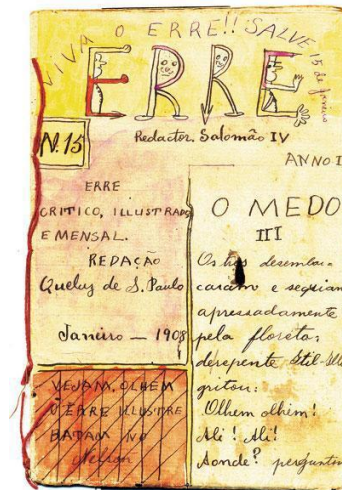 VIVA O ERRE!! SALVE 15 de Janeiro
ERRE
N. 15
Redactor. Salomão IV
ANNO I
ERRE
CRITICO, ILLUSTRADO
E MENSAL.
REDAÇÃO
Queluz de S. Paulo
Janeiro — 1908
VEJAM, OLHEM
O ERRE ILLUSTRE
BATAM NO
Nelson
O MEDO
III
Os tres desembar-
caram e seguiam
apressadamente
pela floresta;
derepente
gritou:
Olhem olhim!
Ali! Ali!
Aonde? perguntou